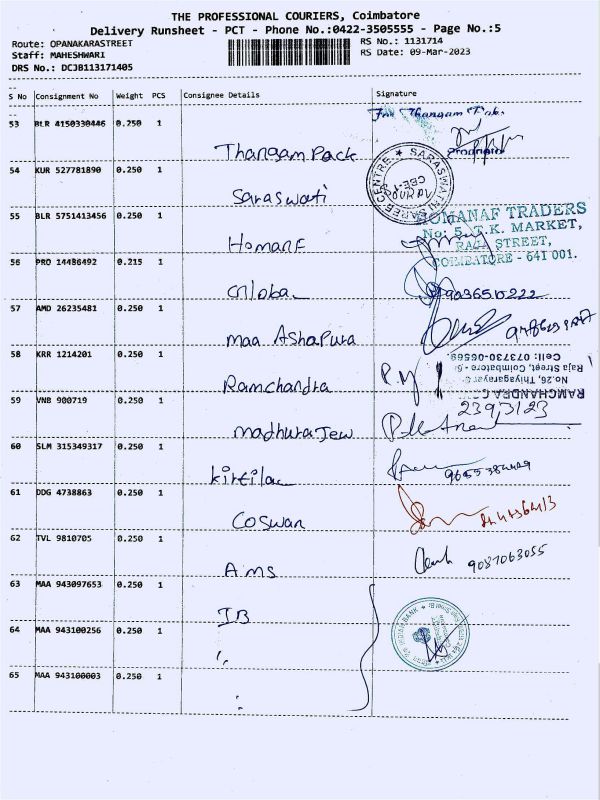 THE PROFESSIONAL COURIERS, Coimbatore
Delivery Runsheet - PCT - Phone No.:0422-3505555 - Page No.:5
Route: OPANAKARASTREET
RS No.: 1131714
Staff: MAHESHWARI
RS Date: 09-Mar-2023
DRS No.: DCJB113171405
S No Consignment No Weight PCS Consignee Details Signature
53 BLR 4150330446 0.250 1
For Thangam Pack
Thangam Pack
Proprietor
54 KUR 527781890 0.250 1
SARASWATHI SAREE CENTRE
CBE-1
Saraswati
55 BLR 5751413456 0.250 1
HOMANAF TRADERS
No: 5, T.K. MARKET,
RAJA STREET,
COIMBATORE - 641 001.
Homanf
56 PRO 14486492 0.215 1
9036510222
57 AMD 26235481 0.250 1
maa Ashapura
58 KRR 1214201 0.250 1
Cell: 073730-06569.
Raja Street, Coimbatore
No.26, Thiyagarayar
RAMCHANDRA
Ramchandra
59 VNB 900719 0.250 1
madhura Jew
60 SLM 315349317 0.250 1
kirtilac
61 DDG 4738863 0.250 1
Coswan
62 TVL 9810705 0.250 1
9087063055
Ams
63 MAA 943097653 0.250 1
IB
INDIAN BANK
64 MAA 943100256 0.250 1
"
65 MAA 943100003 0.250 1
"